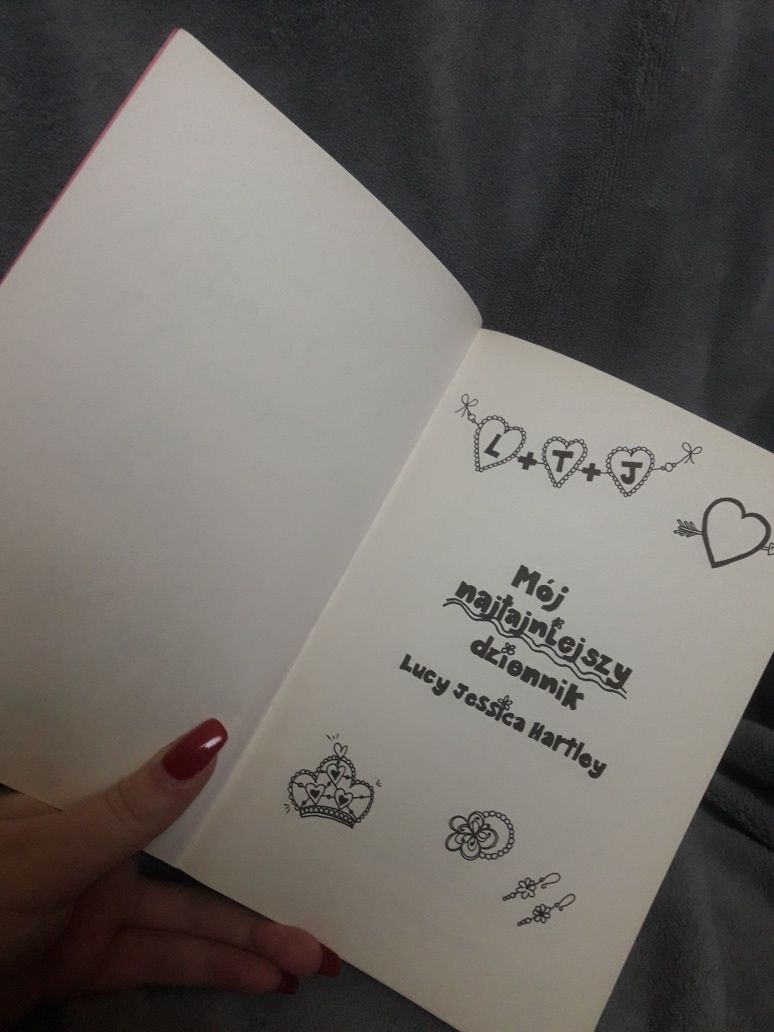 L + T + J
Mój
najtajniejszy
dziennik
Lucy Jessica Hartley